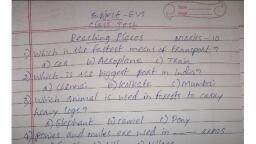 Subject-EVS
Class Test
Reaching Places Marks-10
1) Which is the fastest means of transport?
a) Car b) Aeroplane c) Train
2) Which is the biggest port in India?
a) Chennai b) Kolkata c) Mumbai
3) Which animal is used in forests to carry
heavy logs?
a) Elephant b) camel c) Pony
4) Ponies and mules are used in areas